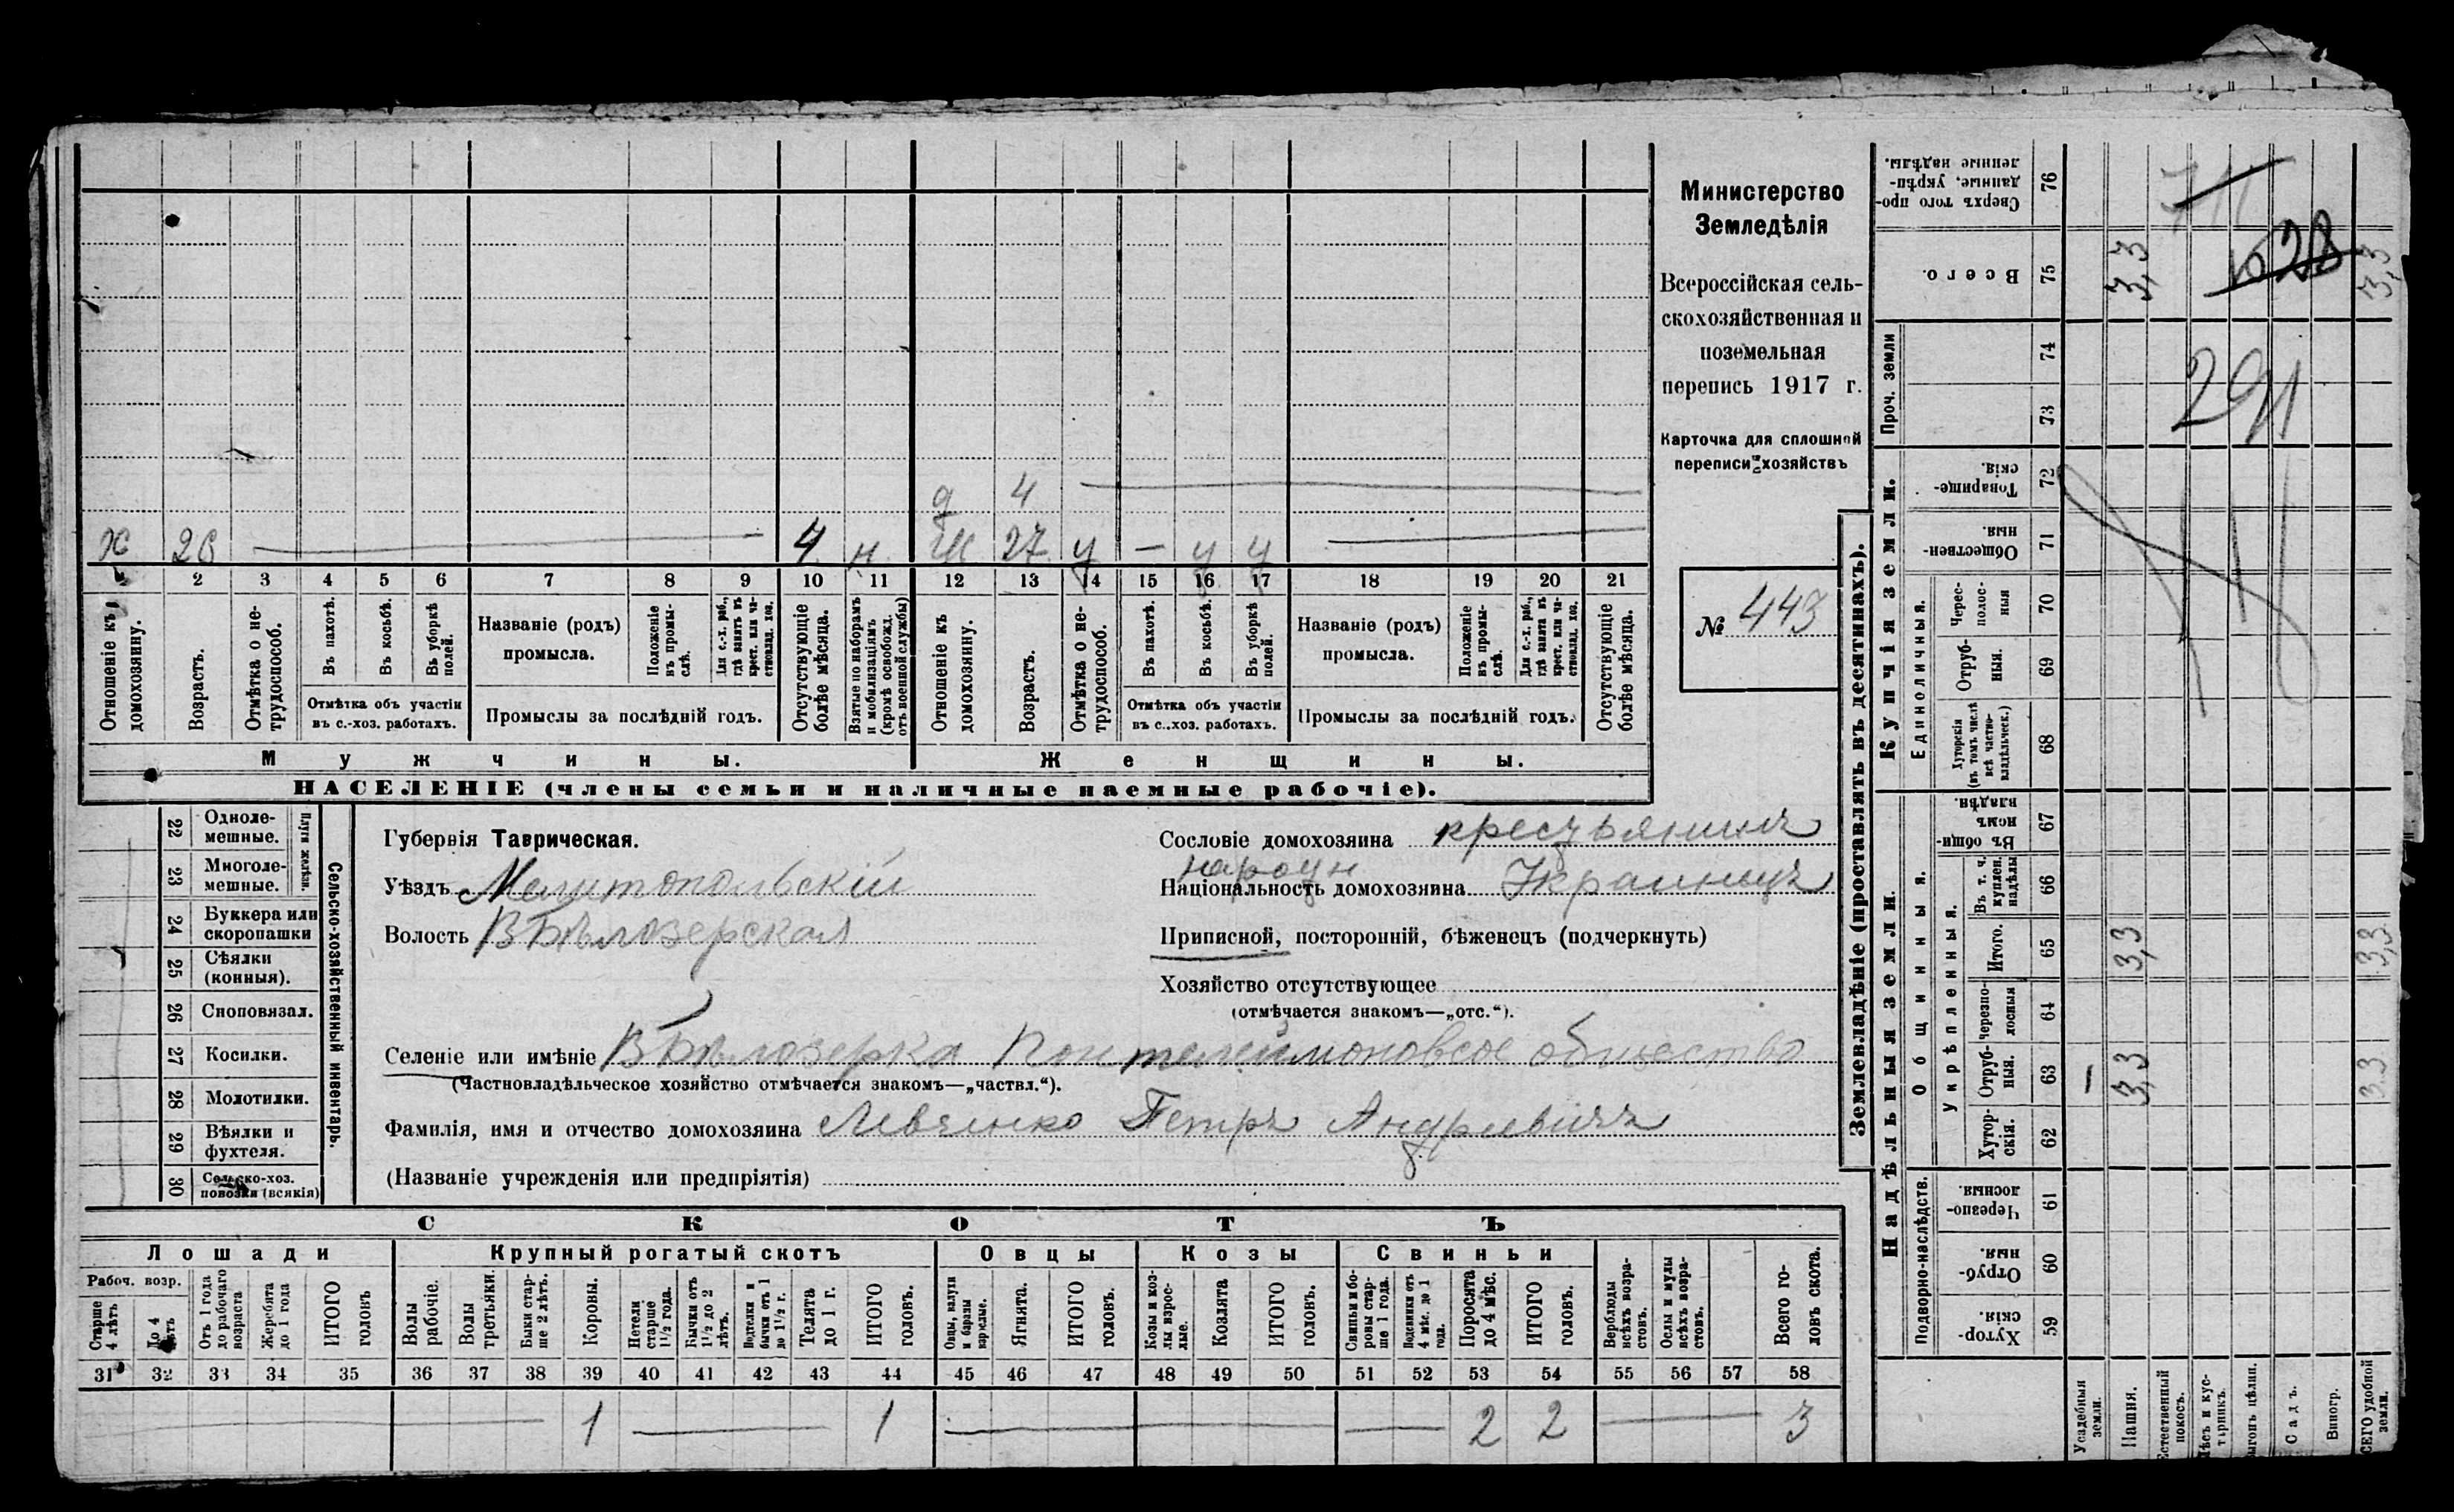 Министерство
Земледѣлія
Всероссійская сель-
скохозяйственная и
поземельная
перепись 1917 г.
Карточка для сплошной
переписи хозяйствъ
№ 443
д 4
х 26 4 н ж 27 у — у у
1 2 3 4 5 6 7 8 9 10 11 12 13 14 15 16 17 18 19 20 21
Отношеніе къ домохозяину.
Возрастъ.
Отмѣтка о не-трудоспособ.
Въ пахотѣ.
Въ косьбѣ.
Въ уборкѣ полей.
Отмѣтка объ участіи въ с.-хоз. работахъ.
Названіе (родъ) промысла.
Положеніе въ промы-слѣ.
Для с.-х. раб., гдѣ занятъ въ крест. или ча-стновлад. хоз.
Промыслы за послѣдній годъ.
Отсутствующіе болѣе мѣсяца.
Взятые по наборамъ и мобилизаціямъ (кромѣ освобожд. отъ военной службы)
Отношеніе къ домохозяину.
Возрастъ.
Отмѣтка о не-трудоспособ.
Въ пахотѣ.
Въ косьбѣ.
Въ уборкѣ полей.
Отмѣтка объ участіи въ с.-хоз. работахъ.
Названіе (родъ) промысла.
Положеніе въ промы-слѣ.
Для с.-х. раб., гдѣ занята въ крест. или ча-стновлад. хоз.
Промыслы за послѣдній годъ.
Отсутствующіе болѣе мѣсяца.
Мужчины.
Женщины.
НАСЕЛЕНІЕ (члены семьи и наличные наемные рабочіе).
22 Одноле-мешные.
23 Многоле-мешные.
Плуги желѣзн.
24 Буккера или скоропашки
25 Сѣялки (конныя).
26 Сноповязал.
27 Косилки.
28 Молотилки.
29 Вѣялки и фухтеля.
30 Сельско-хоз. повозки (всякія)
Сельско-хозяйственный инвентарь.
Губернія Таврическая.
Уѣздъ Мелитопольскій
Волость В Бѣлозерская
Сословіе домохозяина крестьянинъ
Національность домохозяина Украинецъ
Приписной, посторонній, бѣженецъ (подчеркнуть)
Хозяйство отсутствующее
(отмѣчается знакомъ—„отс.“).
Селеніе или имѣніе В Бѣлозерка Понтелеймоновсое общество
(Частновладѣльческое хозяйство отмѣчается знакомъ—„частвл.“).
Фамилія, имя и отчество домохозяина Левченко Петръ Андріевичъ
(Названіе учрежденія или предпріятія)
СКОТЪ
Лошади
Крупный рогатый скотъ
Овцы
Козы
Свиньи
Рабоч. возр.
Старше 4 лѣтъ
До 4 лѣтъ
Отъ 1 года до рабочаго возраста
Жеребята до 1 года
ИТОГО головъ
Волы рабочіе.
Волы третьяки.
Быки стар-ше 2 лѣтъ.
Коровы.
Нетели старше 1½ года.
Бычки отъ 1½ до 2 лѣтъ.
Подтелки и бычки отъ 1 до 1½ г.
Телята до 1 г.
ИТОГО головъ.
Овцы, валухи и бараны взрослые.
Ягнята.
ИТОГО головъ.
Козы и коз-лы взрос-лые.
Козлята
ИТОГО головъ.
Свиньи и бо-ровы стар-ше 1 года.
Подсвинки отъ 4 мѣс. до 1 года.
Поросята до 4 мѣс.
ИТОГО головъ.
Верблюды всѣхъ возра-стовъ.
Ослы и мулы всѣхъ возра-стовъ.
Всего го-ловъ скота.
31 32 33 34 35 36 37 38 39 40 41 42 43 44 45 46 47 48 49 50 51 52 53 54 55 56 57 58
1 1 2 2 3
Землевладѣніе (проставлять въ десятинахъ).
Купчія земли.
Надѣльныя земли.
Сверхъ того про-данные, укрѣп-ленные надѣлы. 76
Всего. 75 3,3 3,3
Проч. земли 74 73
291
Товарище-скія. 72
Обществен-ныя. 71
Единоличныя.
Черес-полос-ныя 70
Отруб-ныя. 69
Хуторскія (въ томъ числѣ всѣ частно-владѣльческ.) 68
Общинныя.
Въ общи-номъ владѣн. 67
Въ т. ч. куплен. надѣлы 66
Укрѣпленныя.
Итого. 65 3,3 3,3
Черезпо-лосныя 64
Отруб-ныя. 63 1 3,3 3.3
Хутор-скія. 62
Подворно-наслѣдств.
Черезпо-лосныя. 61
Отруб-ныя. 60
Хутор-скія. 59
Усадебныя земли.
Пашня.
Естественный покосъ.
Лѣсъ и кус-тарникъ.
Выгонъ цѣлин.
Садъ.
Виногр.
ВСЕГО удобной земли.